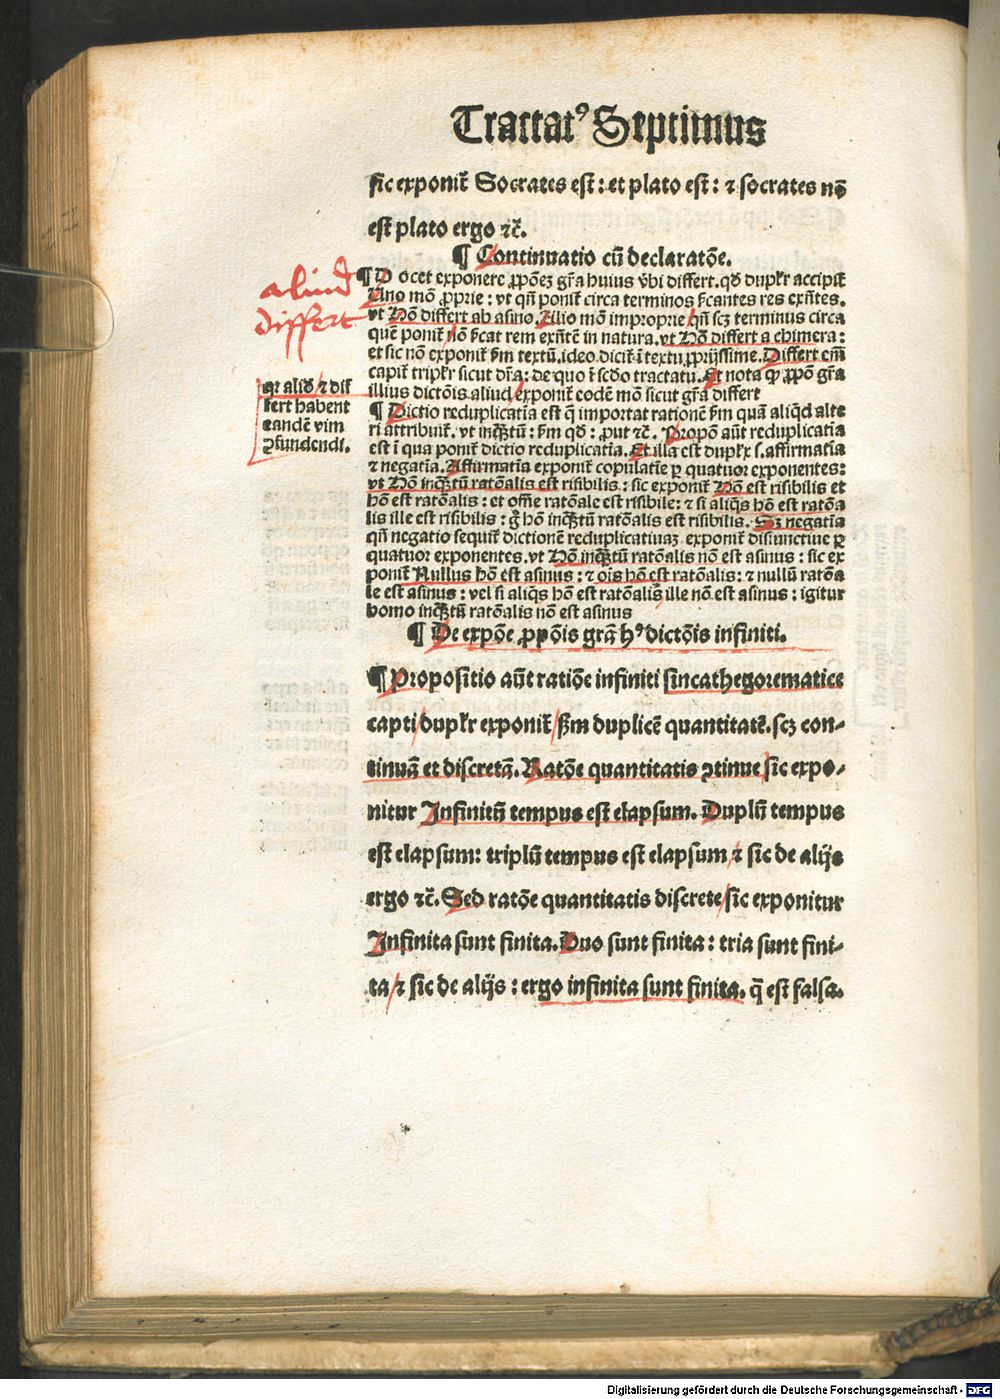 Tractatꝰ Septimus
sic exponit̃ Socrates est : et plato est : ⁊ socrates nō
est plato ergo ⁊c̃.
¶ Continuatio cū declaratõe.
¶ Docet exponere ꝓpõeʒ gr̃a huius v̄bi differt. qđ duplr̃ accipit̃
Uno mõ ꝓprie : vt qñ ponit̃ circa terminos ſcantes res exñtes.
vt Hõ differt ab asino. Alio mõ improprie qñ scʒ terminus circa
quē ponit̃ nõ ſcat rem exñtē in natura. vt Hõ differt a chimera :
et sic nõ exponit̃ ẜm textū, ideo dicit̃ ī textu ꝓprijssime. Differt em̄
capit̃ triplr̃ sicut dr̃a : de quo ī scđo tractatu. Et nota ꝙ ꝓpõ gr̃a
illius dictõis aliud exponit̃ eodē mõ sicut gr̃a differt
¶ Dictio reduplicatīa est q̄ importat rationē ẜm quā aliqđ alte
ri attribuit̃. vt inqᷓʒtū : ẜm qđ : ꝓut ⁊c̃. Propõ aūt reduplicatīa
est ī qua ponit̃ dictio reduplicatīa. Et illa est duplx̃ s. affirmatīa
⁊ negatīa. Affirmatīa exponit̃ copulatīe ꝑ quatuor exponentes :
vt Hõ inqᷓʒtū ratõnalis est risibilis : sic exponit̃ Hõ est risibilis et
hõ est ratõnalis : et om̄e ratõnale est risibile : ⁊ si aliqͥs hõ est ratõna
lis ille est risibilis : g̊ hõ inqᷓʒtū ratõnalis est risibilis. Sʒ negatīa
qñ negatio sequit̃ dictionē reduplicatiuaʒ exponit̃ disiunctiue ꝑ
quatuor exponentes. vt Hõ inqᷓʒtū ratõnalis nõ est asinus : sic ex
ponit̃ Nullus hõ est asinus : ⁊ oīs hõ est ratõnalis : ⁊ nullū ratõna
le est asinus : vel si aliqͥs hõ est ratõnalis ille nõ est asinus : igitur
homo inqᷓʒtū ratõnalis nõ est asinus
aliud
differt
qꝛ aliđ ⁊ dif
fert habent
eandē vim
ꝯfundendi.
¶ De expõe ꝓpõis grā hꝰ dictõis infiniti.
¶ Propositio aūt ratiõe infiniti sincathegorematice
capti duplr̃ exponit̃ ẜm duplicē quantitatē. scʒ con-
tinuā et discretā. Ratõe quantitatis ꝯtinue sic expo-
nitur Infinitū tempus est elapsum. Duplū tempus
est elapsum: triplū tempus est elapsum ⁊ sic de alijs
ergo ⁊c̃. Sed ratõe quantitatis discrete sic exponitur
Infinita sunt finita. Duo sunt finita : tria sunt fini-
ta ⁊ sic de alijs : ergo infinita sunt finita. q̄ est falsa.
Digitalisierung gefördert durch die Deutsche Forschungsgemeinschaft - DFG